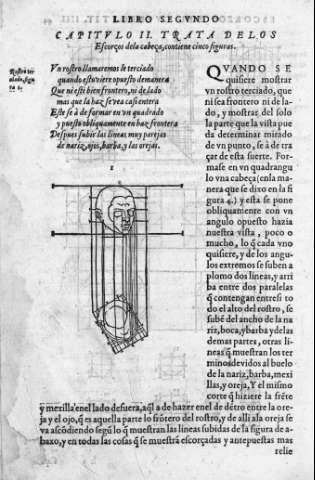 LIBRO SEGVNDO
CAPITVLO II. TRATA DE LOS
Escorços dela cabeça, contiene cinco figuras.
Rostro ter
ciado, figu
ra 1.
Vn rostro llamaremos se terciado
quando estuuiere opuesto demanera
Que ni esté bien frontero, ni de lado
mas que la haz se vea casi entera
Este se à de formar en vn quadrado
y puesto obliquamente en haz frontera
Despues subir las lineas muy parejas
de nariz, ojos, barba, y las orejas.
1
QVANDO SE
quisiere mostrar
vn rostro terciado, que
ni sea frontero ni de la-
do, y mostras del solo
la parte que la vista pue
da determinar mirado
de vn punto, se à de tra
çar de esta suerte. For-
mase en vn quadrangu
lo vna cabeça (en la ma
nera que se dixo en la fi
gura 4.) y esta se pone
obliquamente con vn
angulo opuesto hazia
nuestra vista, poco o
mucho, lo q̃ cada vno
quisiere, y de los angu-
los extremos se suben a
plomo dos lineas, y arri
ba entre dos paralelas
q̃ contengan entre si to
do el alto del rostro, se
subẽ del ancho de la na
riz, boca, y barba y de las
demas partes, otras li-
neas q̃ muestran los ter
minos deuidos al buelo
de la nariz, barba, mexi
llas, y oreja, Y el mismo
corte q̃ hiziere la frẽte
y mexilla enel lado de fuera, aq̃l a de hazer enel de dẽtro entre la ore-
ja y el ojo, q̃ es aquella parte lo frõtero del rostro, y de alli ala oreja se
va ascõdiendo segũ lo q̃ muestran las lineas subidas de la figura de a-
baxo, y en todas las cosas q̃ se muestrã escorçadas y antepuestas mas
relie